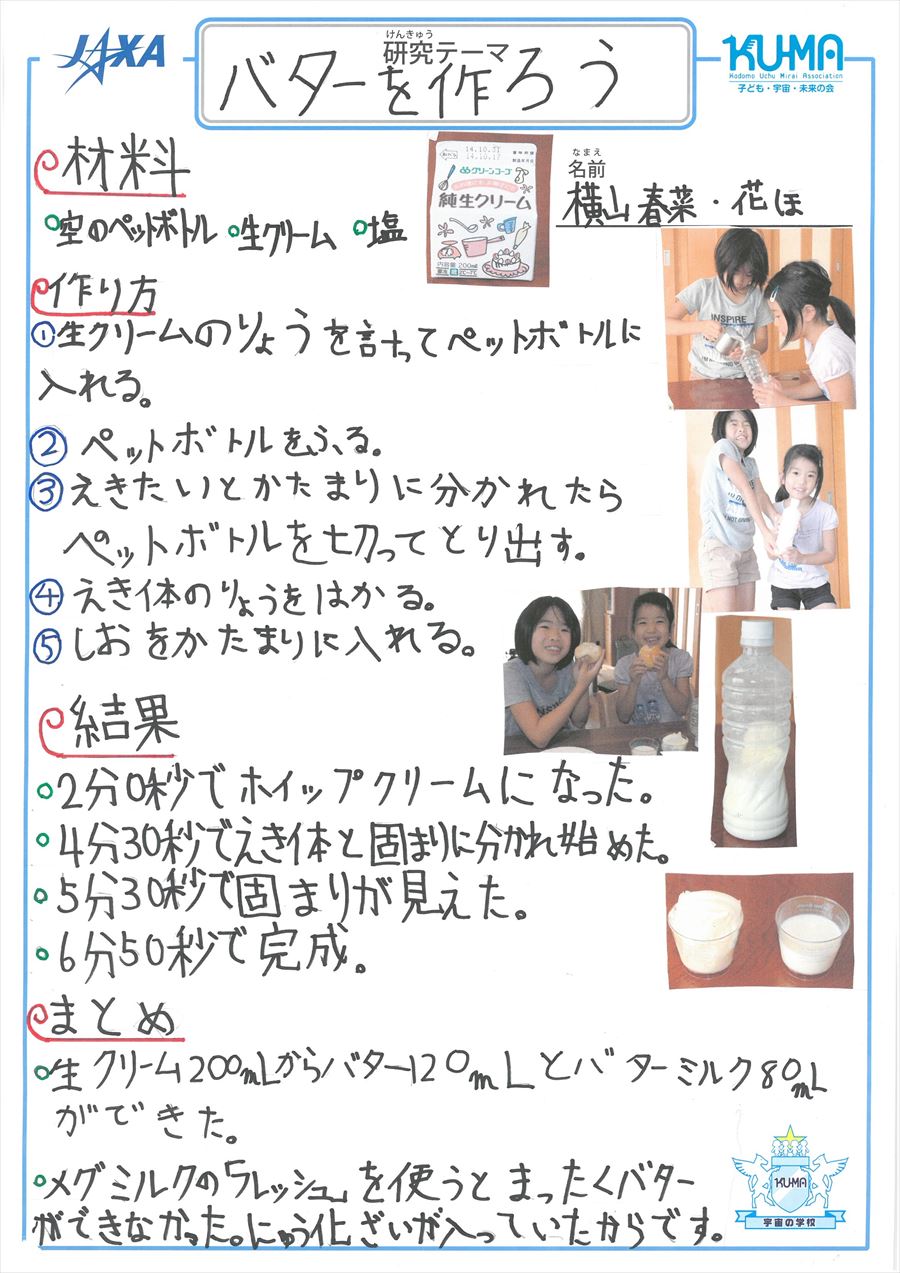 JAXA
けんきゅう
研究テーマ
バターを作ろう
KU-MA
Kodomo Uchu Mirai Association
子ども・宇宙・未来の会
材料
なまえ
名前
横山春菜・花ほ
空のペットボトル 生クリーム 塩
14.10.31
14.10.17
グリーンコープ
純生クリーム
内容量200ml
作り方
①生クリームのりょうを計ってペットボトルに
入れる。
②ペットボトルをふる。
③えきたいとかたまりに分かれたら
ペットボトルを切ってとり出す。
④えき体のりょうをはかる。
⑤しおをかたまりに入れる。
INSPIRE
結果
2分0秒でホイップクリームになった。
4分30秒でえき体と固まりに分かれ始めた。
5分30秒で固まりが見えた。
6分50秒で完成。
まとめ
生クリーム200mLからバター120mLとバターミルク80mL
ができた。
メグミルクの「フレッシュ」を使うとまったくバター
ができなかった。にゅう化ざいが入っていたからです。
KU-MA
宇宙の学校